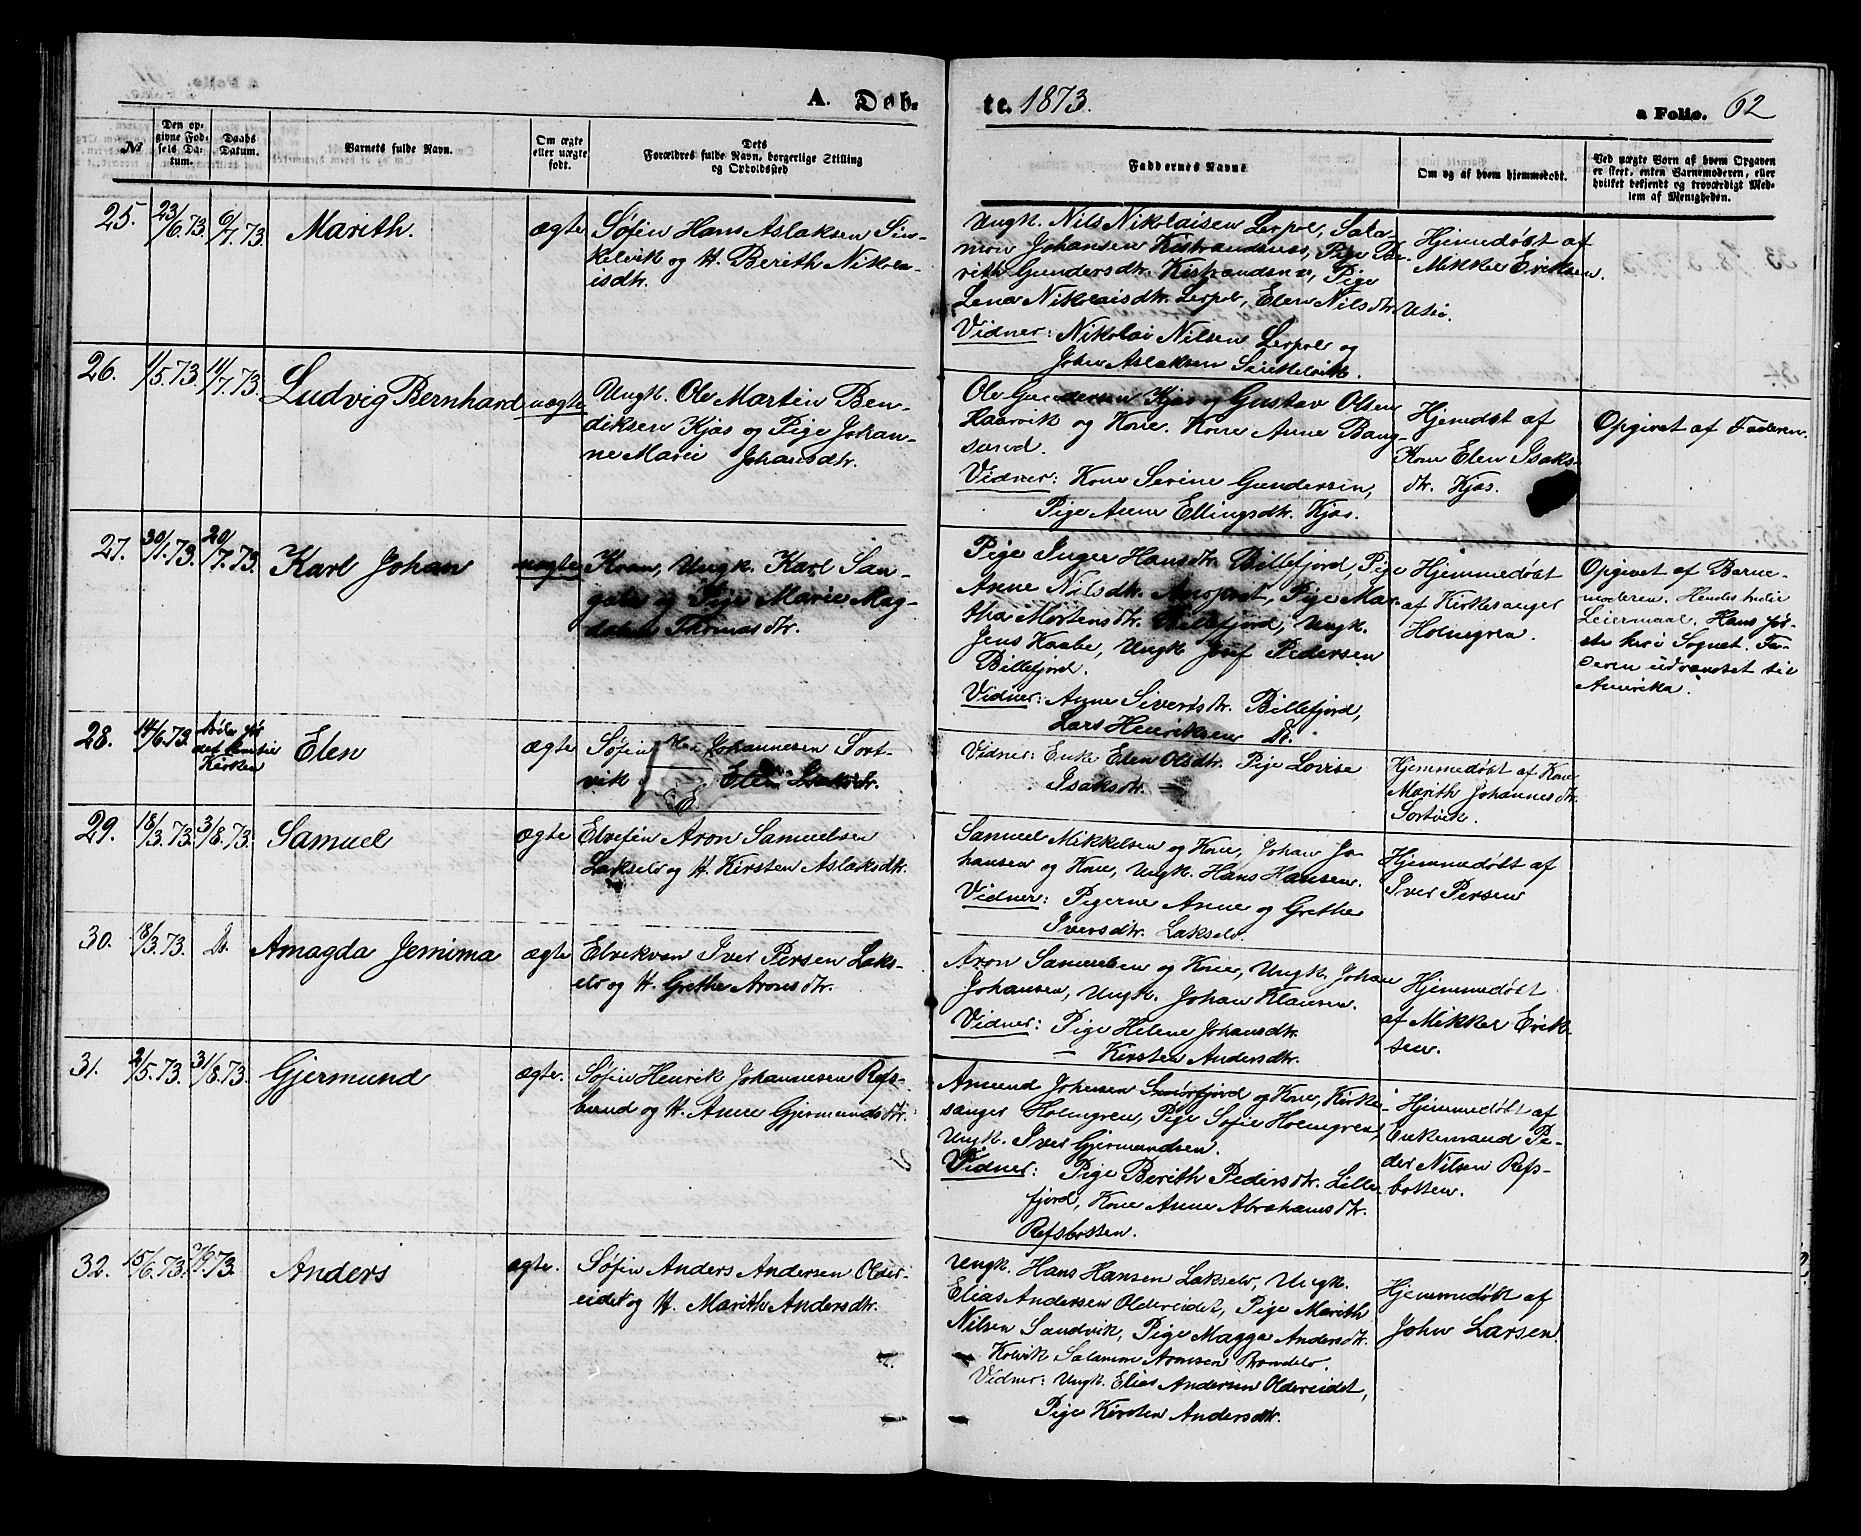 A. Døb-
te. 1873.
a Folio. 62
No
Den op-
givne Fød-
sels Da-
tum.
Daabs
Datum.
Barnets fulde Navn.
Om ægte
eller uægte
født.
Dets
Forældres fulde Navn, borgerlige Stilling
og Opholdssted
Faddernes Navne
Om og af hvem hjemmedøbt.
Ved uægte Børn af hvem Opgaven
er skeet, enten Barnemoderen, eller
hvilket bekjendt og troværdigt Med-
lem af Menigheden.
25. 23/6.73. 6/7.73. Marith. ægte
Søfin Hans Aslaksen Sin-
kelvik og H. Berith Nikola-
isdtr.
Ungk. Nils Nikolaisen Lerpol, Sala-
mon Johansen Kistrandsnes, Pige Be-
rith Gundersdtr. Kistrandsnes, Pige
Lena Nikolaisdtr. Lerpol, Elen Nilsdtr.
Vidner: Nikolai Nilsen Lerpol og
John Aslaksen
Hjemmedøbt af
Mikkel Eriksen
26. 1/5.73. 14/7.73. Ludvig Bernhard uægte
Ungk. Ole Martin Ben-
diksen Kjæs og Pige Johan-
ne Marie Johansdtr.
Ole Gundersen Kjæs og Gustav Olsen
Haarvik og Kone. Kone Anne Bang-
sund.
Vidner: Kone Serine Gundersen,
Pige Anne Ellingsdtr. Kjæs.
Hjemdøbt af
Kone Elen Isaks-
dtr. Kjæs.
Opgivet af Faderen.
27. 30/1.73. 20/7.73. Karl Johan uægte
Kvæn, Ungk. Karl San-
og Pige Marie Mag-
dalena Thomasdtr.
Pige Inger Hansdtr. Billefjord, Pige
Anne Nilsdtr. Pige Mar-
tha Mortensdtr. Billefjord, Ungk.
Jens Kaabe, Ungk. Josef Pedersen
Billefjord.
Vidner: Anne Sivertsdtr. Billefjord,
Lars Henriksen Do.
Hjemmedøbt
af Kirkesanger
Holmgren.
Opgivet af Barne-
moderen. Hendes tredie
Leiermaal. Hans før-
ste her i Sognet. Fa-
deren udvandret til
Amerika.
28. 14/6.73. Døde før
det kom til
Kirken Elen ægte
Søfin Johannesen Sort-
vik Elen
Vidner: Enke Elen Olsdtr. Pige Lovise
Isaksdtr.
Hjemmedøbt af Kone
Marith Johannesdtr.
Sortvik.
29. 18/3.73. 3/8.73. Samuel ægte
Elvefin Aron Samuelsen
Lakselv og H. Kirsten Aslaksdtr.
Samuel Mikkelsen og Kone, Johan Jo-
hansen og Kone, Ungk. Hans Hansen.
Vidner: Pigerne Anne og Grethe
Iversdtr. Lakselv.
Hjemmedøbt af
Iver Persen
30. 18/3.73. Do. Amagda Jemima ægte
Elvekvæn Iver Persen Laks-
elv og H. Grethe Aronsdtr.
Aron Samuelsen og Kone, Ungk. Johan
Johansen, Ungk. Johan Klausen.
Vidner: Pige Helene Johansdtr.
— Kirsten Andersdtr.
Hjemmedøbt
af Mikkel Erik-
sen.
31. 2/5.73. 31/8.73. Gjermund ægte.
Søfin Henrik Johannesen Refs-
bund og H. Anne Gjermundsdtr.
Amund Johnsen Smørfjord og Kone, Kirke-
sanger Holmgren, Pige Sofie Holmgren,
Ungk. Iver Gjermundsen.
Vidner: Pige Berith Pedersdtr. Lille-
fjord, Kone Anne Abrahamsdtr.
Refsbotten.
Hjemmedøbt af
Enkemand Pe-
der Nilsen Refs-
botten.
32. 15/6.73. 73. Anders ægte.
Søfin Anders Andersen Older-
eidet og H. Marith Andersdtr.
Ungk. Hans Hansen Lakselv, Ungk.
Elias Andersen Oldereidet, Pige Marith
Nilsen Sandvik, Pige Magga Andersdtr.
Kolvik Salamon Aronsen
Vidner: Ungk. Elias Andersen Oldereidet,
Pige Kirsten Andersdtr.
Hjemmedøbt af
John Larsen.